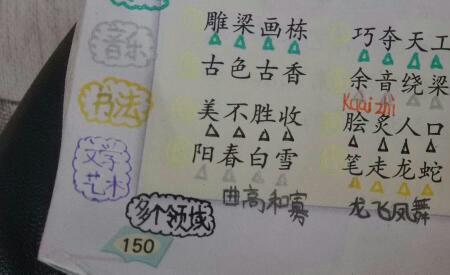 雕梁画栋 巧夺天工
音乐
古色古香 余音绕梁
Kuaizhi
书法
美不胜收 脍炙人口
阳春白雪 笔走龙蛇
文学
艺术
曲高和寡 龙飞凤舞
多个领域
150